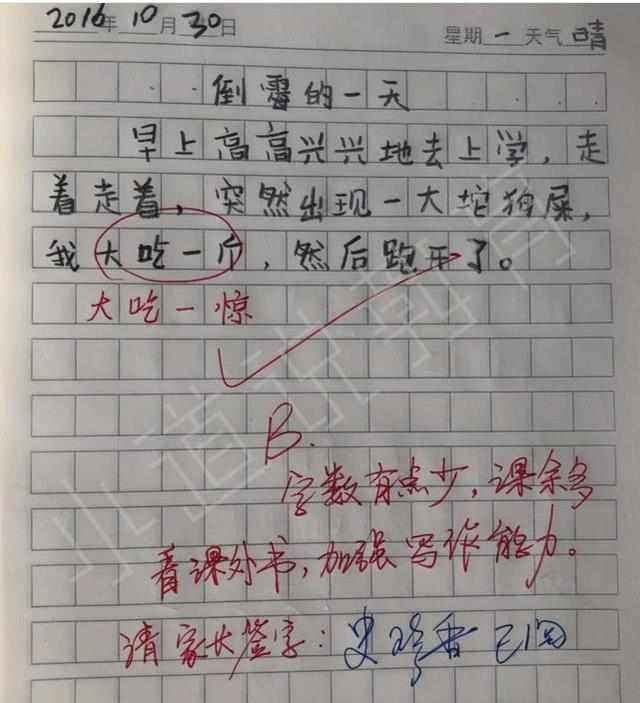 2016年10月30日 星期一 天气晴
倒霉的一天
早上高高兴兴地去上学,走
着走着,突然出现一大坨狗屎,
我大吃一斤,然后跑开了。
大吃一惊
B.
字数有点少,课余多
看课外书,加强写作能力。
请家长签字:史珍香 已阅